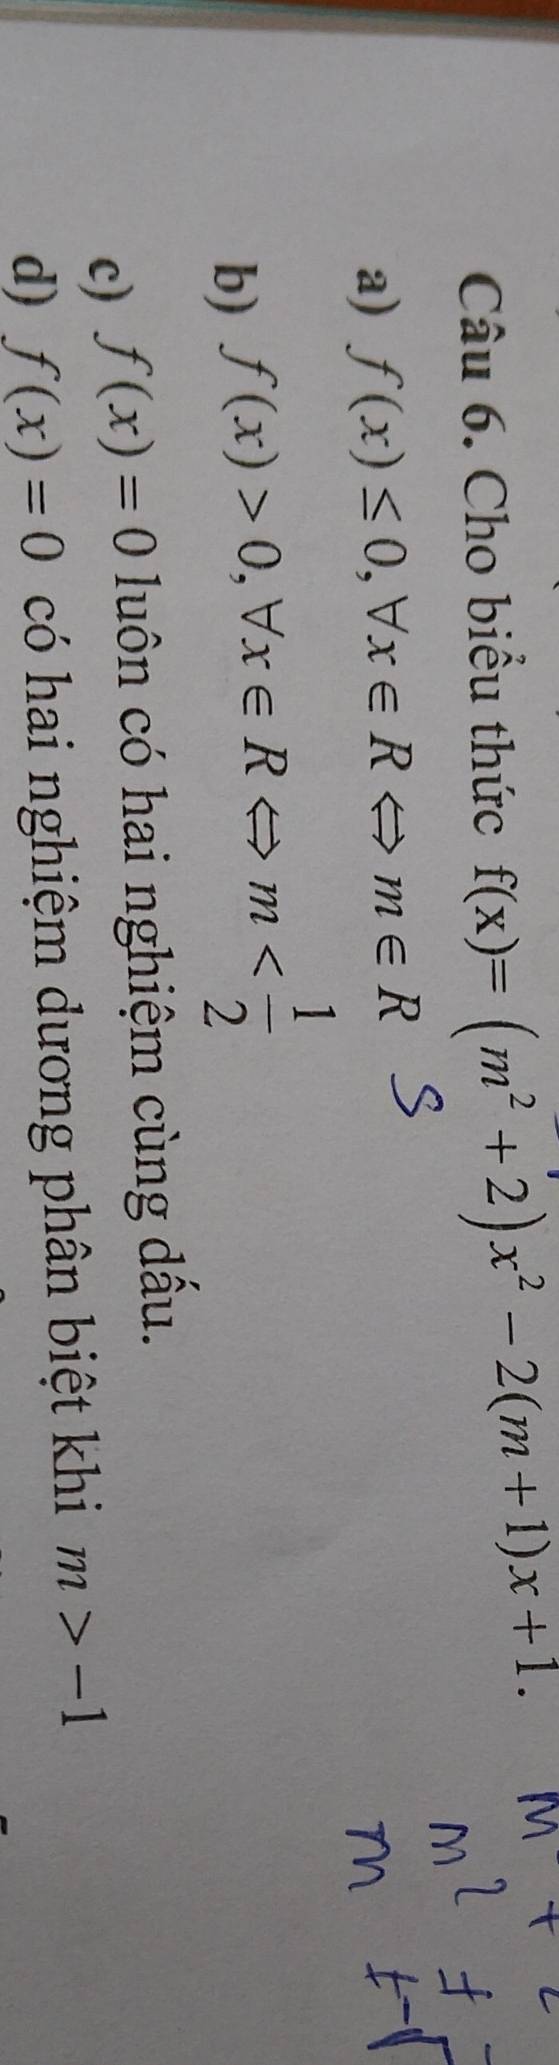 Câu 6. Cho biểu thức f(x)= (m² + 2)x² − 2(m + 1)x + 1.
a) f(x) ≤ 0, ∀x ∈ R ⇔ m ∈ R S
b) f(x) > 0, ∀x ∈ R ⇔ m < 1/2
c) f(x) = 0 luôn có hai nghiệm cùng dấu.
d) f(x) = 0 có hai nghiệm dương phân biệt khi m > −1
m² ≠
m ≠